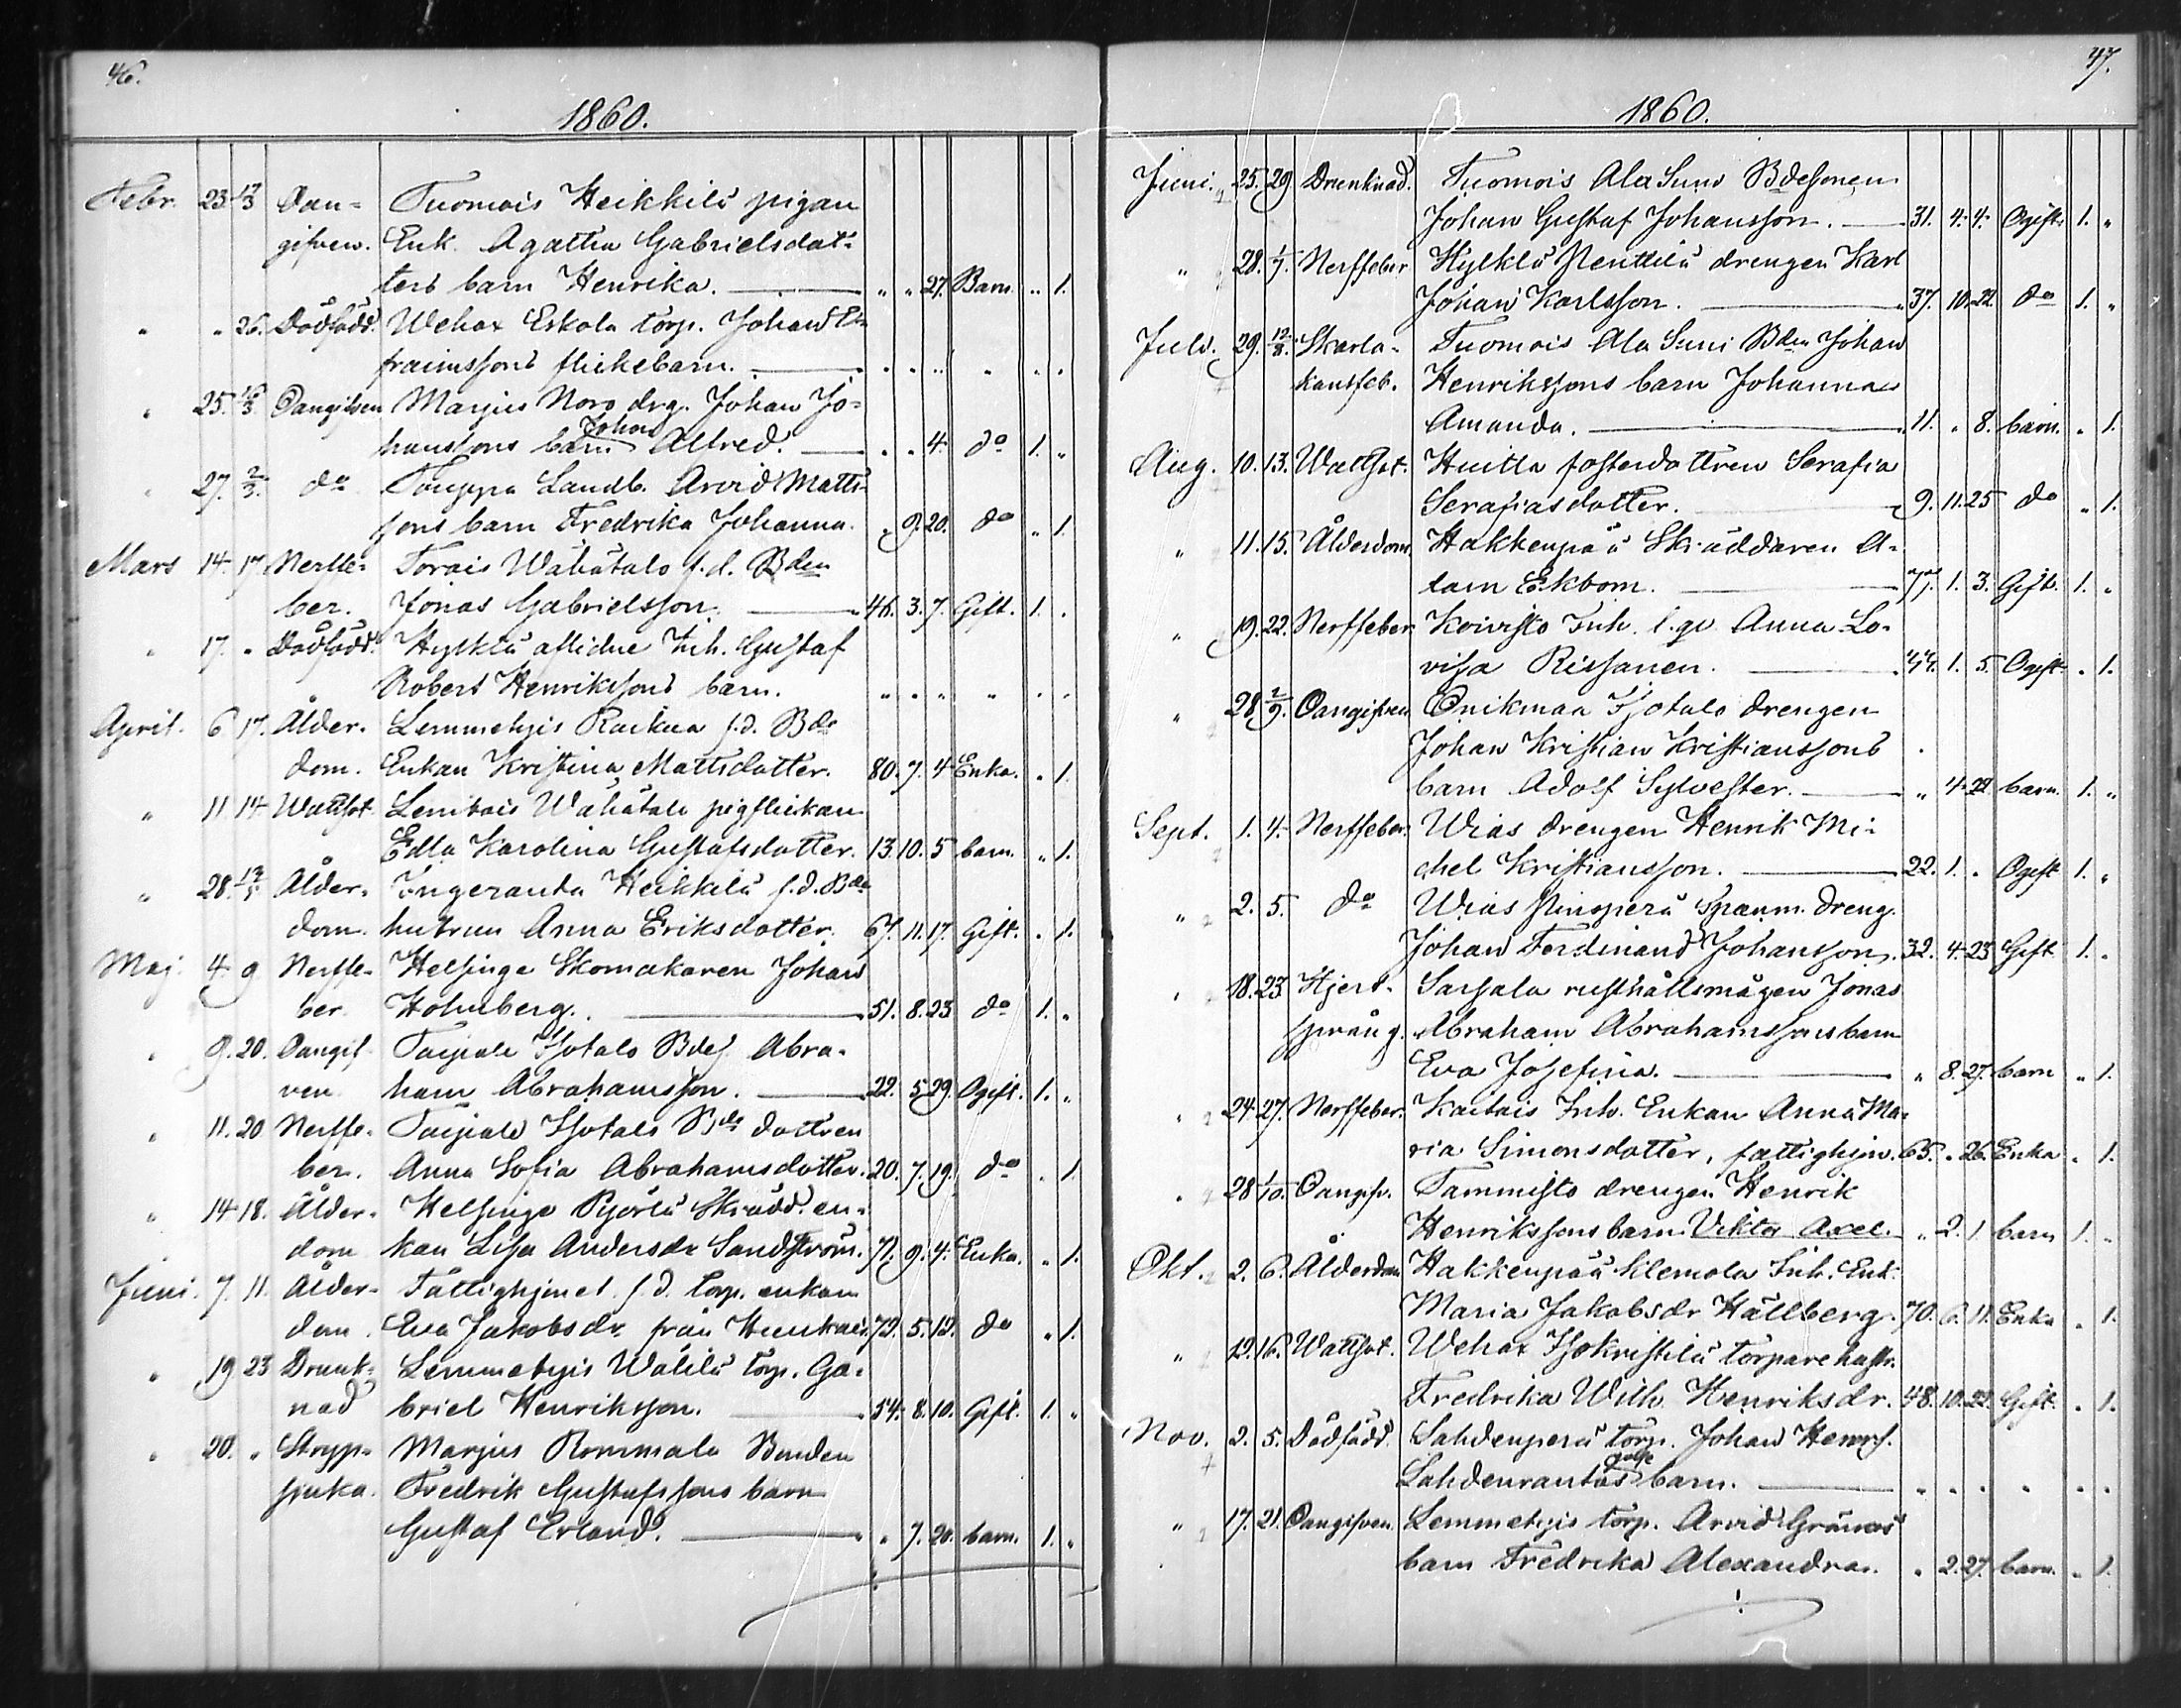 46.
1860.
Febr. 23. 17/3 Oan- Tuomois Heikkilä pigan
gifven. Enk. Agatha Gabrielsdot-
ters barn Henrika. " " 27. Barn " 1.
" " 26. Dödfödd. Wehax Eskola torp. Johan E-
fraimssons flickebarn. " " " " " "
" 25. 16/3. Oangifven Marjus Noro drg. Johan Jo-
hanssons barn Johan Alfred. " " 4. do 1. "
" 27. 2/3. do Laudb. Arvid Matts-
sons barn Fredrika Johanna. " 9. 20. do " 1.
Mars 14. 17. Nerffe- Torais Wähätalo f.d. Bden
ber. Jonas Gabrielsson. 46. 3. 7. Gift. 1. "
" 17. " Dödfödd. Hylklä aflidne Inh. Gustaf
Robert Henrikssons barn. " " " " " "
April. 6. 17. Ålder- Lemmetyis Raikua f.d. Bde
dom. Enkan Kristina Mattsdotter. 80. 7. 4. Enka. " 1.
" 11. 14. Wattsot Wähätalo pigflickan
Edla Karolina Gustafsdotter. 13. 10. 5 barn. " 1.
" 28. 13/5. Ålder- Ingeranta Heikkilä f.d. Bde
dom. hustrun Anna Eriksdotter. 67. 11. 17. Gift. " 1.
Maj. 4. 9. Nerffe- Helsinge Skomakaren Johan
ber. Holmberg. 51. 8. 23. do 1. "
" 9. 20. Oangif- Taipale Isotalo Bdes. Abra-
ven. ham Abrahamsson. 22. 5. 29. Ogift. 1. "
" 11. 20. Nerffe- Taipale Isotalo Bde dottren
ber. Anna Sofia Abrahamsdotter. 20. 7. 19. do " 1.
" 14. 18. Ålder- Helsinge Pyörlä Skrädd. en-
dom kan Lisa Andersdr Sandström. 71. 9. 4. Enka. " 1.
Juni. 7. 11. Ålder- Fattighjonet f.d. torp. enkan
dom. Eva Jakobsdr från 72. 5. 12. do " 1.
" 19. 23. Drunk- Lemmetyis Wälilä torp. Ga-
nad briel Henriksson. 54. 8. 10. Gift. 1. "
" 20. " Stryp- Marjus Rommala Bonden
sjuka. Fredrik Gustafssons barn
Gustaf Erland. " 7. 20. barn. 1. "
47.
1860.
Juni. 25. 29. Drunknad. Tuomois Ala Suni Bdesonen
Johan Gustaf Johansson. 31. 4. 4. Ogift. 1. "
" 28. 1/7. Nerffeber Hylklä Penttilä drengen Karl
Johan Karlsson. 37. 10. 22. do 1. "
Juli. 29. 12/8. Skarla- Tuomois Ala Suni Bden Johan
kansfeb. Henrikssons barn Johanna
Amanda. 11. " 8. barn. " 1.
Aug. 10. 13. Wattsot. Huitla fosterdottren Serafia
Serafiasdotter. 9. 11. 25 do " 1.
" 11. 15. Ålderdom. Hakkenpää Skräddaren A-
dam Ekbom. 77. 1. 3. Gift. 1. "
" 19. 22. Nerffeber. Koivisto Inh. l. qv. Anna Lo-
visa Rissanen. 44. 1. 5. Ogift. " 1.
" 28. 2/9. Oangifven Onikmaa Isotalo drengen
Johan Kristian Kristianssons
barn Adolf Sylvester. " 4. 22. barn. 1. "
Sept. 1. 4. Nerffeber. Wias drengen Henrik Mi-
chel Kristiansson. 22. 1. " Ogift 1. "
" 2. 5. do Wias Pinoperä Spanm. dreng.
Johan Ferdinand Johansson. 32. 4. 23. Gift 1. "
" 18. 23. Hjert- Sarsala rusthållsmågen Jonas
språng. Abraham Abrahamssons barn
Eva Josefina. " 8. 27. barn " 1.
" 24. 27. Nerffeber. Kaitais Inh. Enkan Anna Ma-
ria Simonsdotter, fattighjon. 65. " 26. Enka " 1.
" 28. 1/10. Oangifv. Tammisto drengen Henrik
Henrikssons barn Viktor Axel. " 2. 1 barn 1. "
Okt. 2. 6. Ålderdom Hakkenpää Klemola Inh. Enk.
Maria Jakobsdr Hällberg. 70. 6. 11. Enka " 1.
" 12. 16. Wattsot. Wehax Isokristilä torpare hustr.
Fredrika Wilh. Henriksdr. 48. 10. 22. Gift. " 1.
Nov. 2. 5. Dödfödd. Lahdenperä torp. Johan Henrs.
Lahdenrantas gosse barn. " " " " " "
" 17. 21. Oangifven. Lemmetyis torp. Arvid Grönroos
barn Fredrika Alexandra. " 2. 27. barn. " 1.